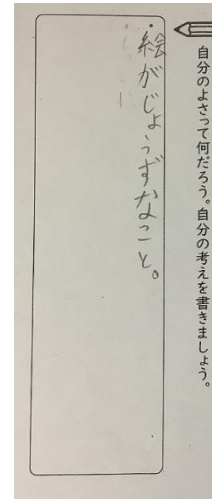 自分のよさって何だろう。自分の考えを書きましょう。
・絵がじょうずなこと。